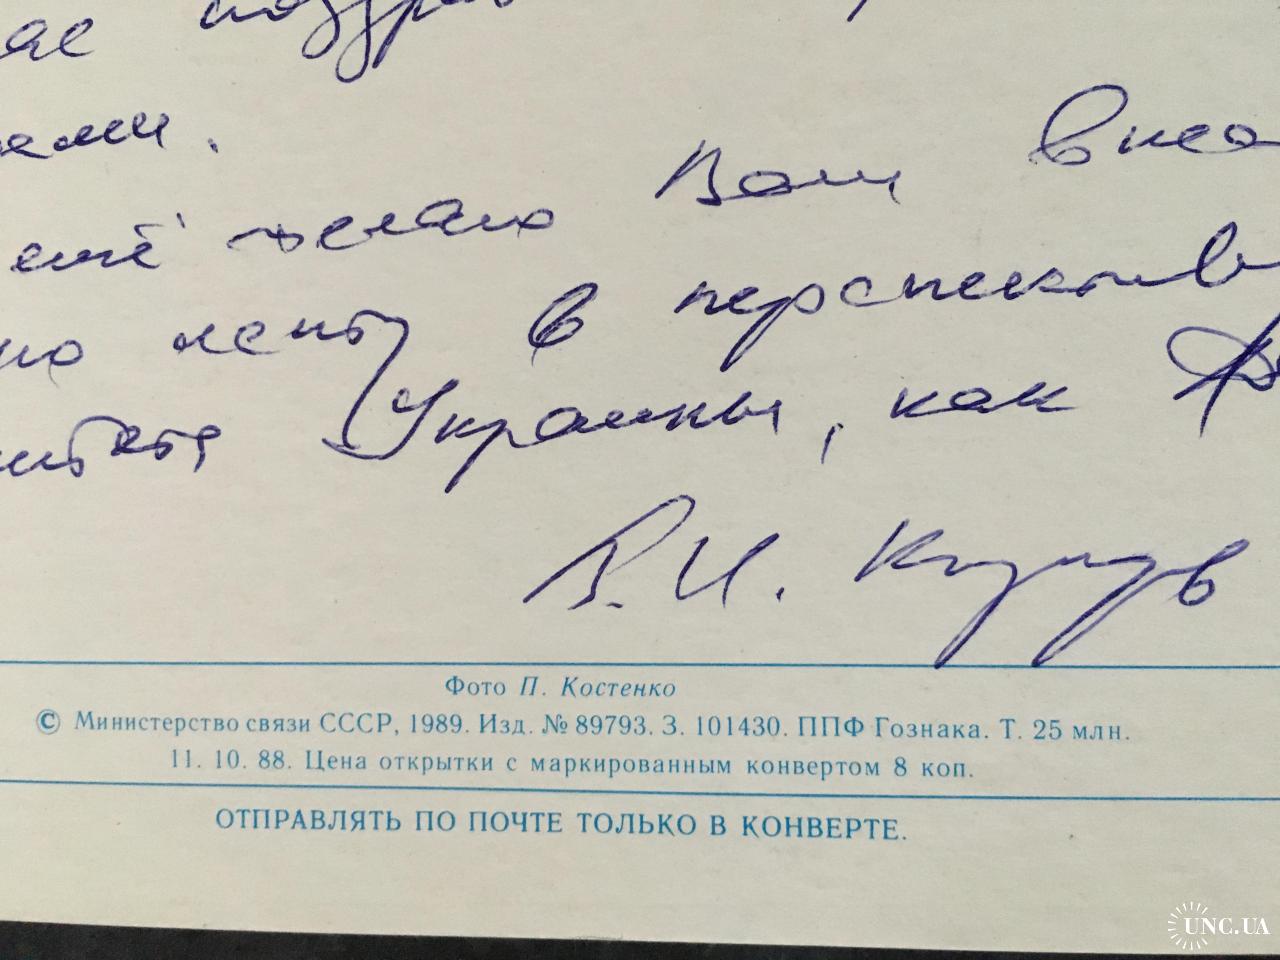 ещё желаю Вам внес
ю лепту в перспектив
Украины, как
В. И.
Фото П. Костенко
© Министерство связи СССР, 1989. Изд. № 89793. З. 101430. ППФ Гознака. Т. 25 млн.
11. 10. 88. Цена открытки с маркированным конвертом 8 коп.
ОТПРАВЛЯТЬ ПО ПОЧТЕ ТОЛЬКО В КОНВЕРТЕ.
UNC.UA